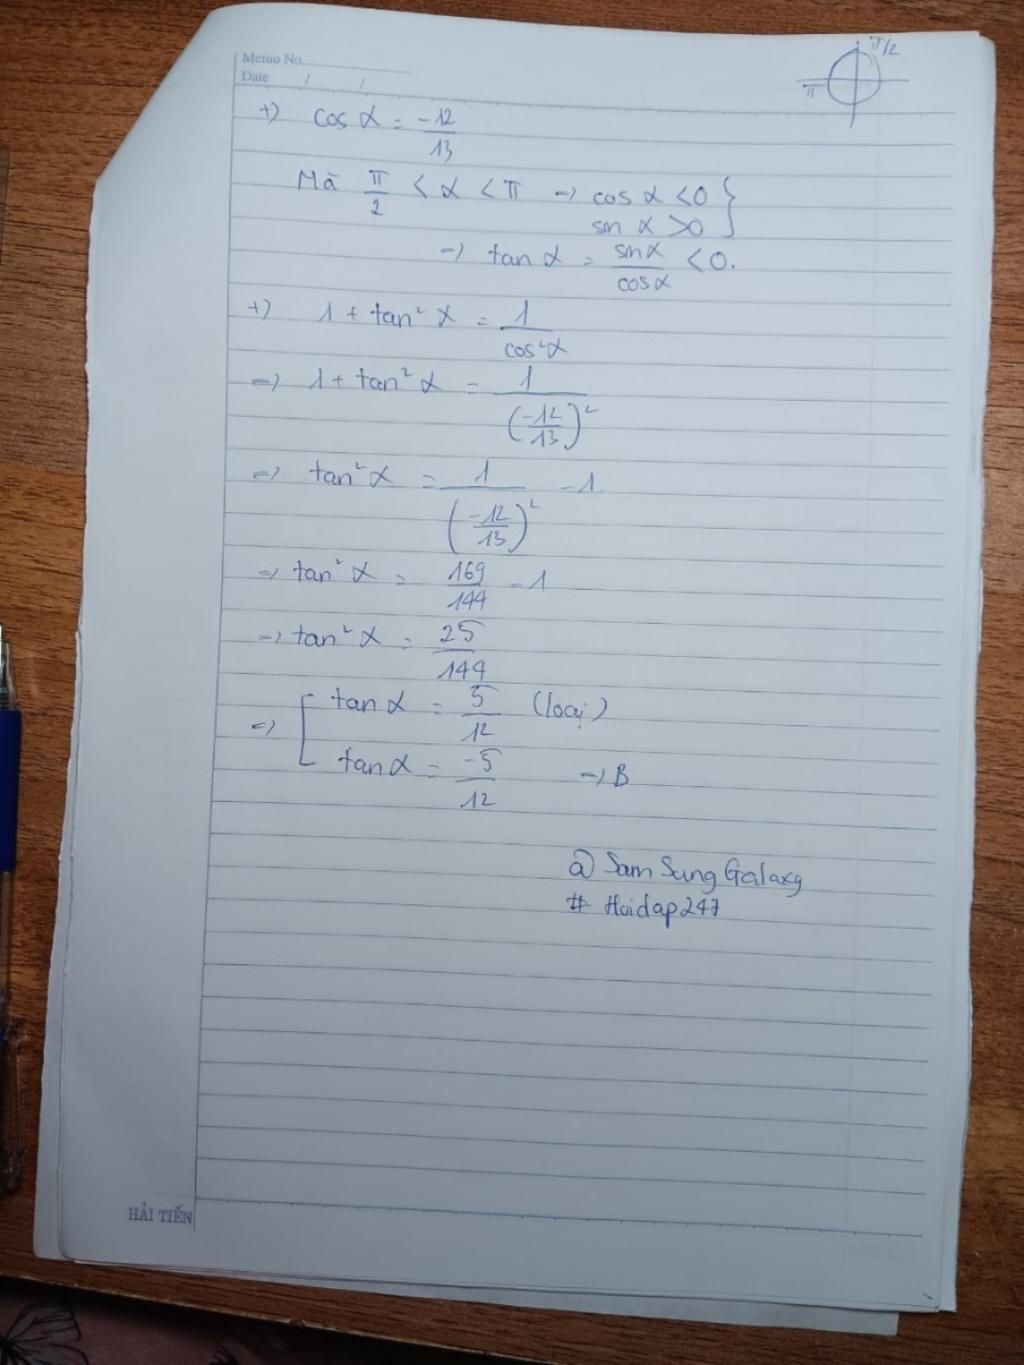 Memo No.
Date / /
π/2
π
+) cos α = -12/13
Mà π/2 < α < π → cos α < 0 }
sin α > 0
→ tan α = sin α/cos α < 0.
+) 1 + tan² α = 1/cos² α
=> 1 + tan² α = 1/(-12/13)²
=> tan² α = 1/(-12/13)² - 1
=> tan² α = 169/144 - 1
=> tan² α = 25/144
=> [ tan α = 5/12 (loại)
tan α = -5/12 → B
@ Sam Sung Galaxy
# Hoidap247
HẢI TIẾN